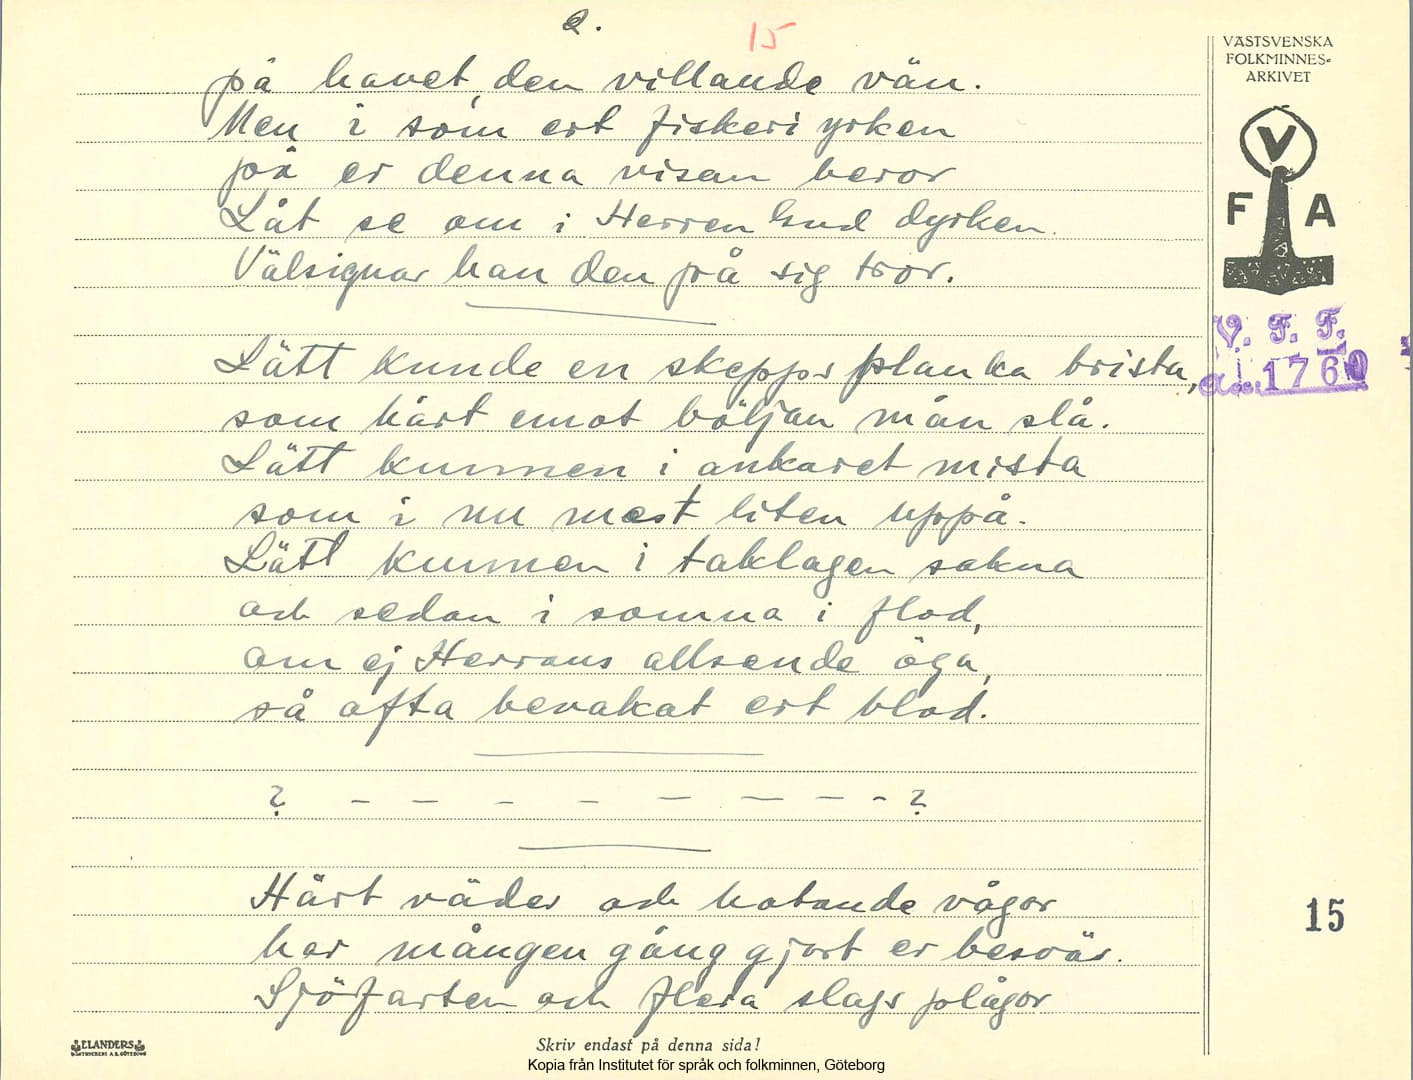 2.
15
på havet, den villande vän.
Men i som ert fiskeri yrken
på er denna visan beror
Låt se om i Herren Gud dyrken.
Välsignar han den på sig tror.
Lätt kunde en skepps planka brista,
som hårt emot böljan mån slå.
Lätt kunnen i ankaret mista
som i nu mest liten uppå.
Lätt kunnen i taklagen sakna
och sedan i somna i flod,
om ej Herrans allseende öga,
så ofta bevakat ert blod.
? – – – – – – – – ?
Hårt väder och hotande vågor
har mången gång gjort er besvär.
Sjöfarten och flera slags plågor
VÄSTSVENSKA
FOLKMINNES-
ARKIVET
V
F A
V. F. F.
1760
15
ELANDERS
Skriv endast på denna sida!
Kopia från Institutet för språk och folkminnen, Göteborg